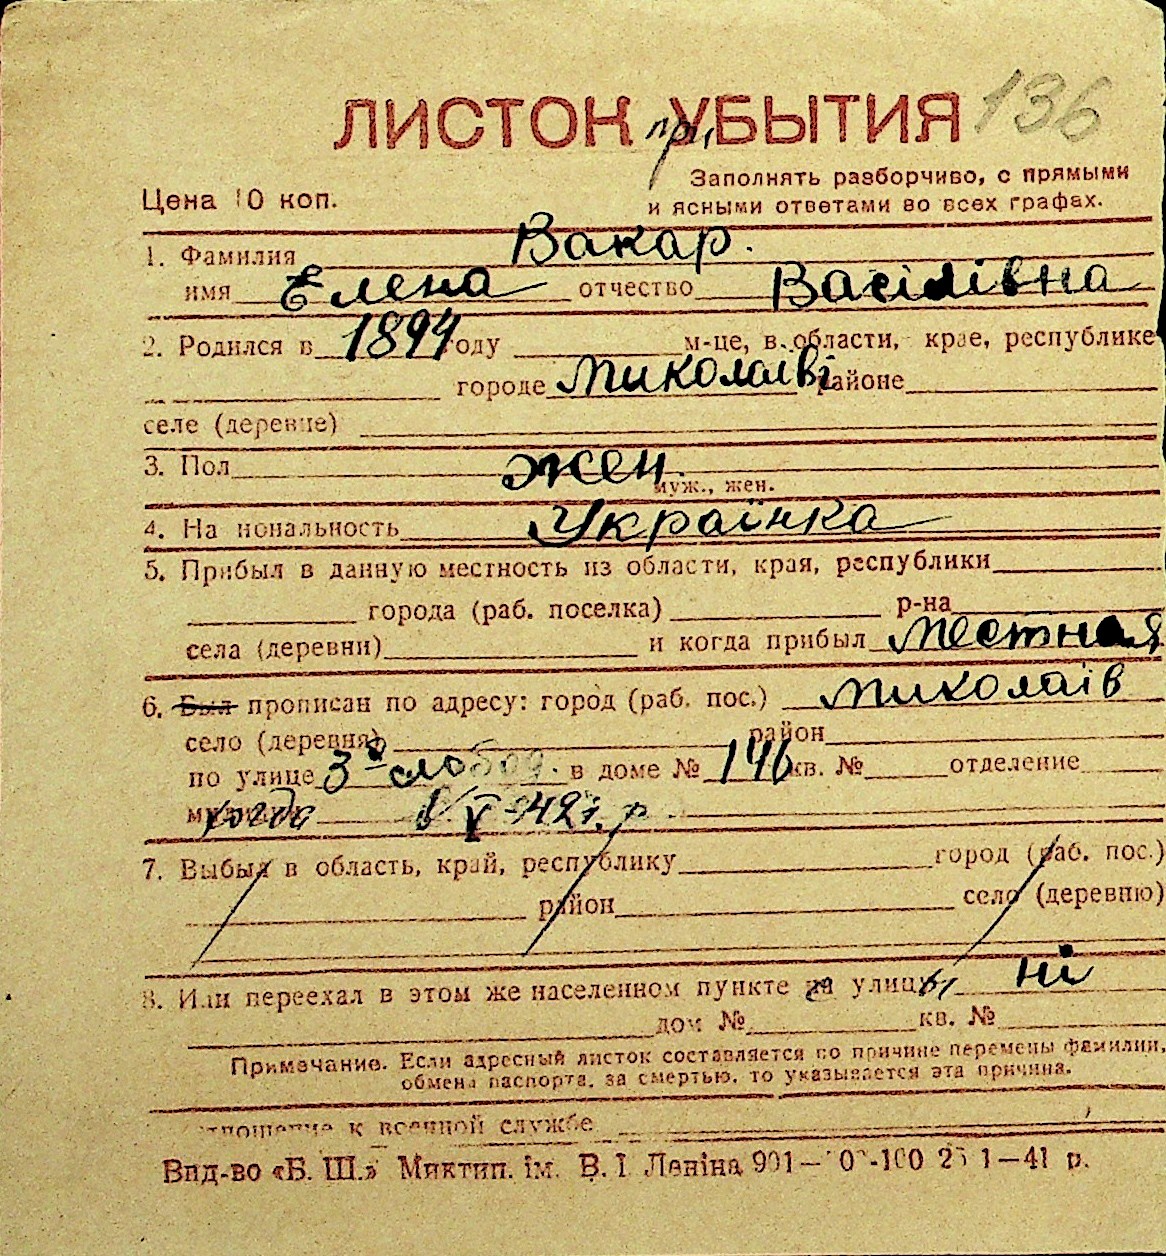 136
ЛИСТОК при УБЫТИЯ
Заполнять разборчиво, с прямыми
Цена 10 коп. и ясными ответами во всех графах.
1. Фамилия Вакар.
имя Елена отчество Васілівна
2. Родился в 1894 году м-це, в области, крае, республике
городе Миколаїві районе
селе (деревне)
3. Пол жен.
муж., жен.
4. Национальность Українка
5. Прибыл в данную местность из области, края, республики
города (раб. поселка) р-на
села (деревни) и когда прибыл местная
6. Был прописан по адресу: город (раб. пос.) Миколаїв
село (деревня) район
по улице 3я слобод. в доме № 146 кв. № отделение
милиции когда V-42 г. р.
7. Выбыл в область, край, республику город (раб. пос.)
район село (деревню)
8. Или переехал в этом же населенном пункте из улицы ні
дом № кв. №
Примечание. Если адресный листок составляется по причине перемены фамилии,
обмена паспорта, за смертью, то указывается эта причина.
отношение к военной службе
Вид-во «Б. Ш.» Миктип. ім. В. І Леніна 901— 1—41 р.